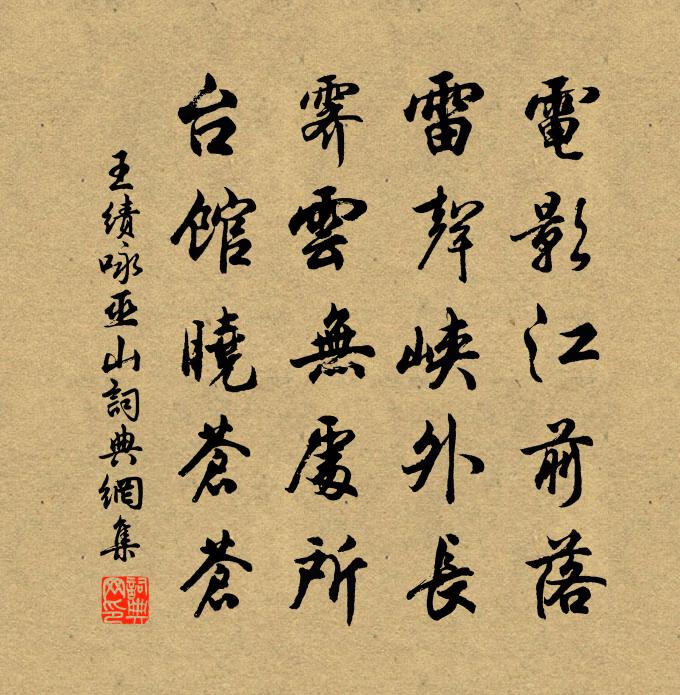 電影江前落
雷聲峽外長
霽雲無處所
台館曉蒼蒼
王績咏巫山詞典網集
詞典網印